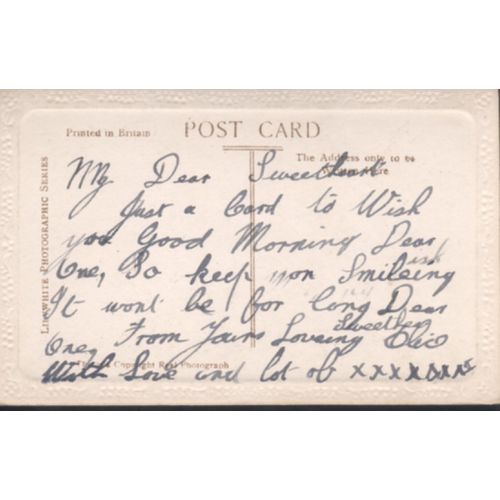 Printed in Britain
POST CARD
The Address only to be
LILYWHITE PHOTOGRAPHIC SERIES
My Dear Sweetheart
Just a Card to Wish
you Good Morning Dear
One, So keep on Smileing
It wont be for long Dear
One, From Yours Loveing
With Love and lot of xxxxxxxx
Copyright Real Photograph